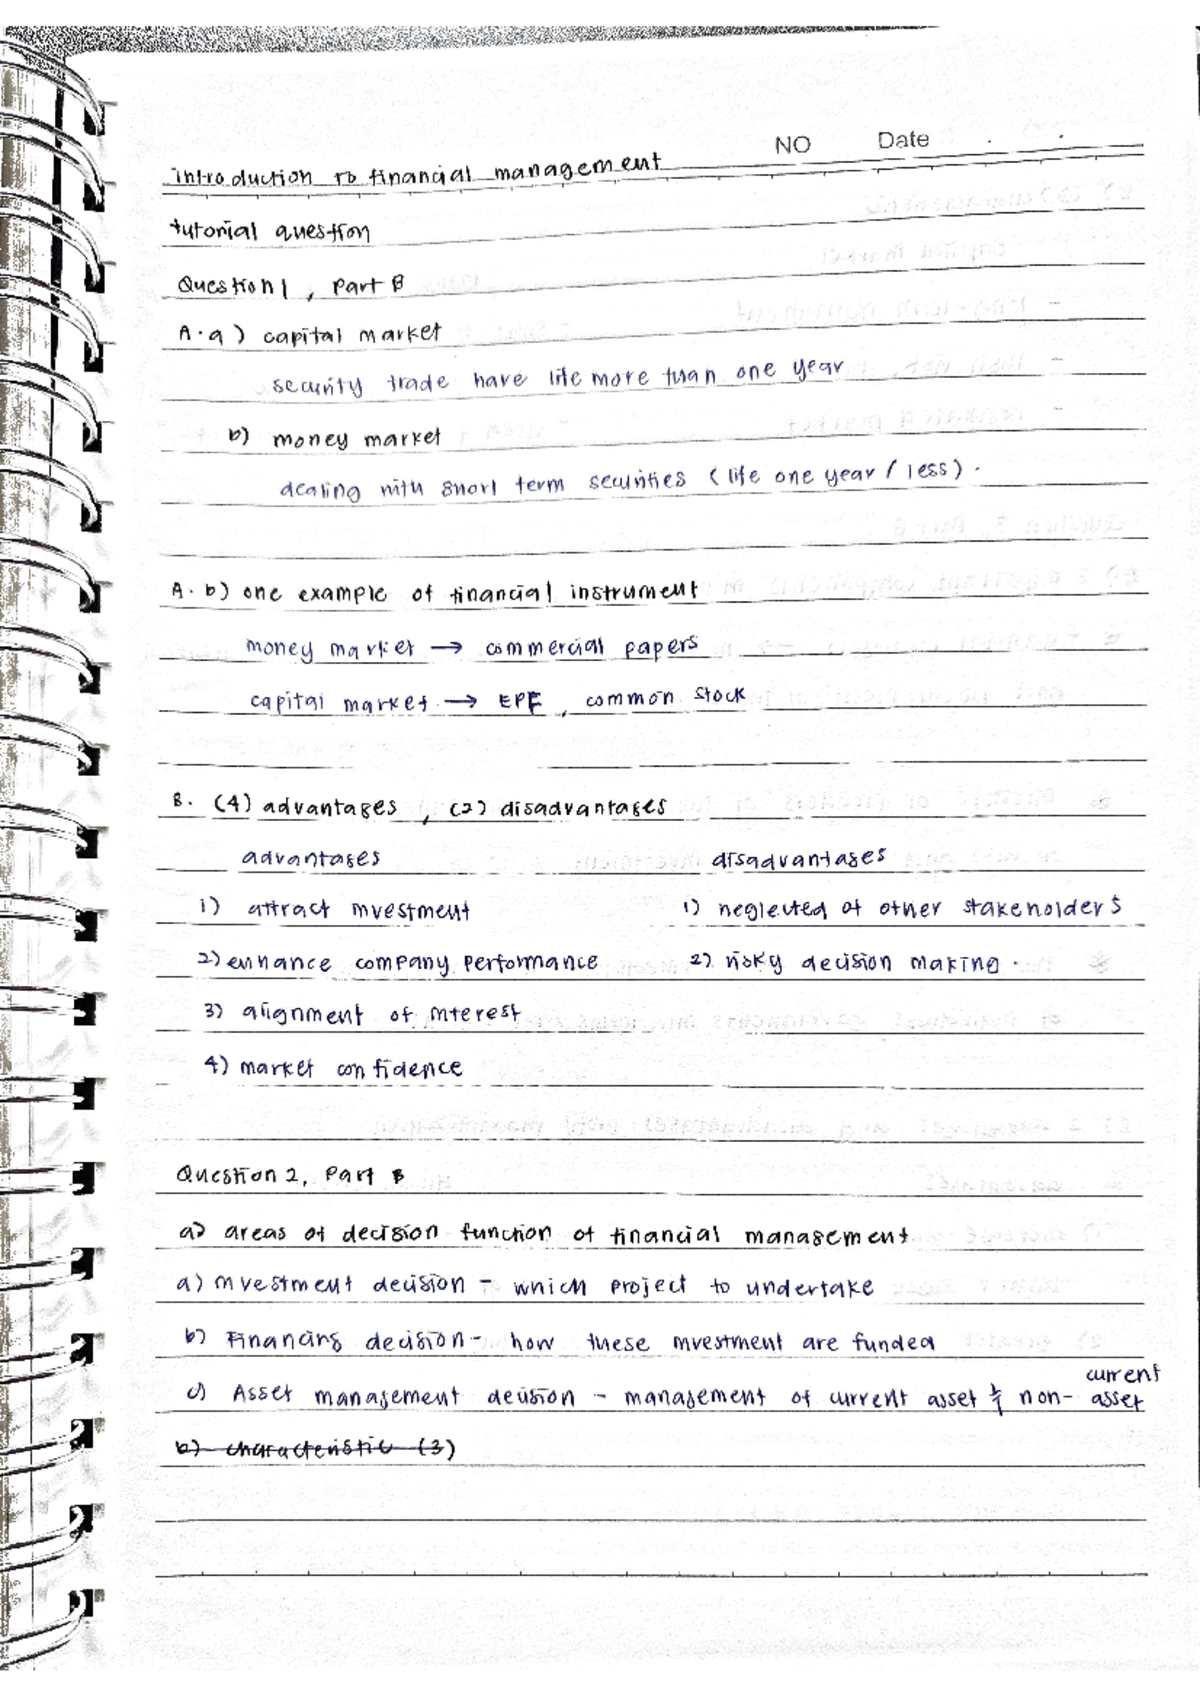 NO Date
introduction to financial management
tutorial question
Question 1, Part B
A. a) capital market
security trade have life more than one year
b) money market
dealing with short term securities (life one year / less).
A. b) one example of financial instrument
money market → commercial papers
capital market → EPF, common stock
B. (4) advantages, (2) disadvantages
advantages disadvantages
1) attract investment 1) neglected of other stakeholders
2) enhance company performance 2) risky decision making.
3) alignment of interest
4) market confidence
Question 2, Part B
a) areas of decision function of financial management
a) investment decision - which project to undertake
b) Financing decision - how these investment are funded
current
c) Asset management decision - management of current asset & non- asset
b) characteristic (3)